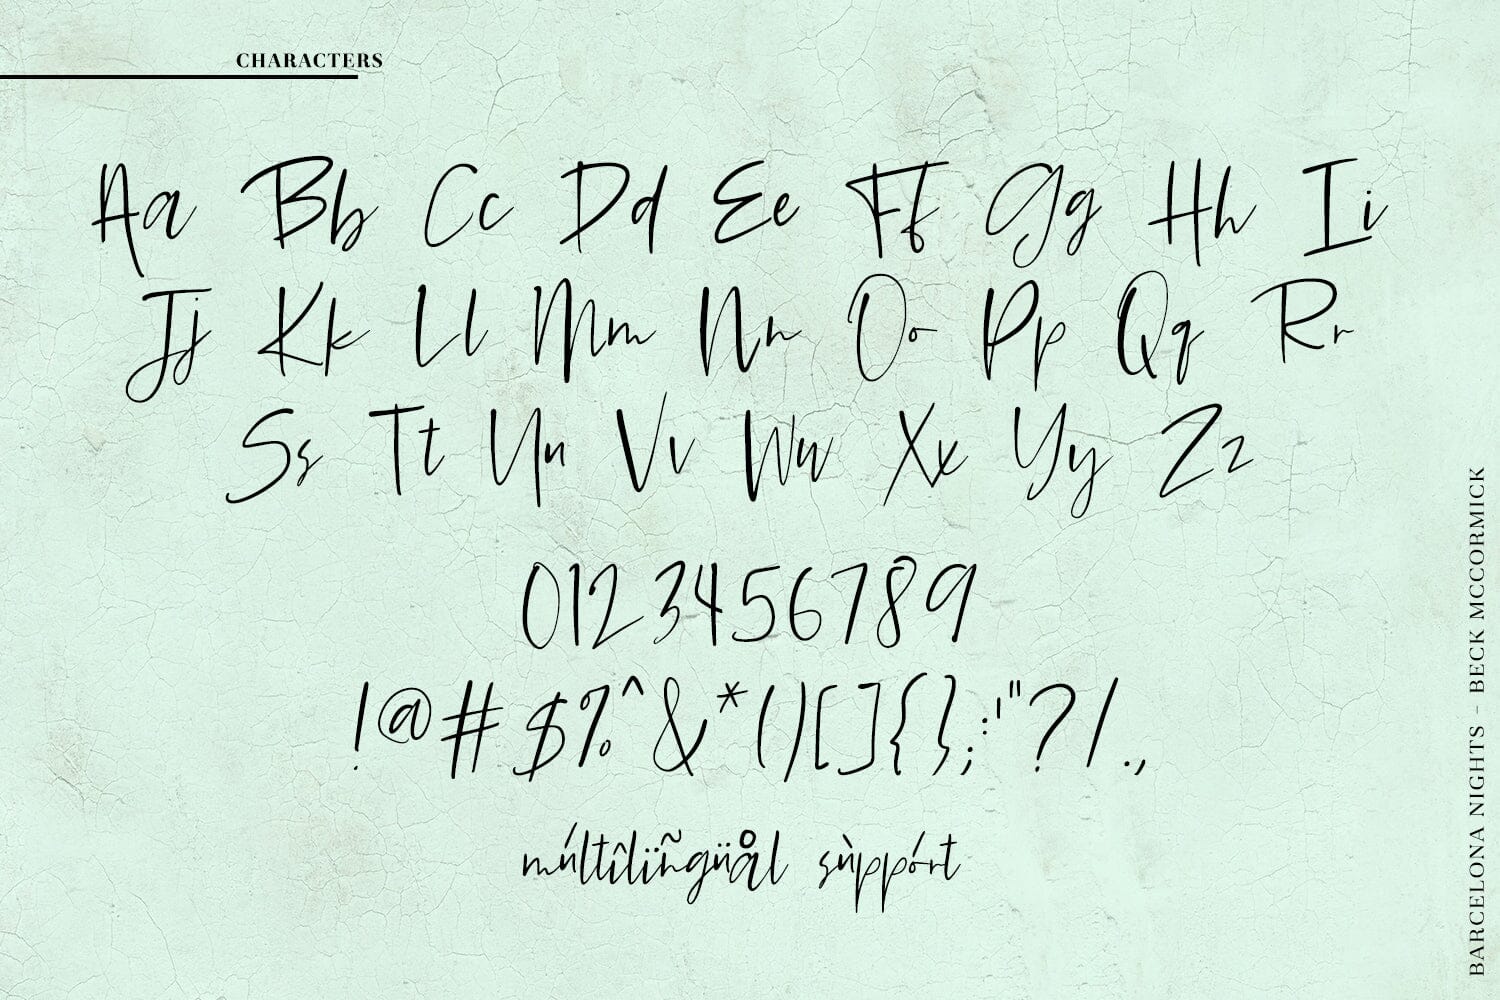 CHARACTERS
Aa Bb Cc Dd Ee Ff Gg Hh Ii
Jj Kk Ll Mm Nn Oo Pp Qq Rr
Ss Tt Uu Vv Ww Xx Yy Zz
0123456789
!@#$%^&*()[]{};:'"?/.,
múltîlïñgüål sùppórt
BARCELONA NIGHTS - BECK MCCORMICK